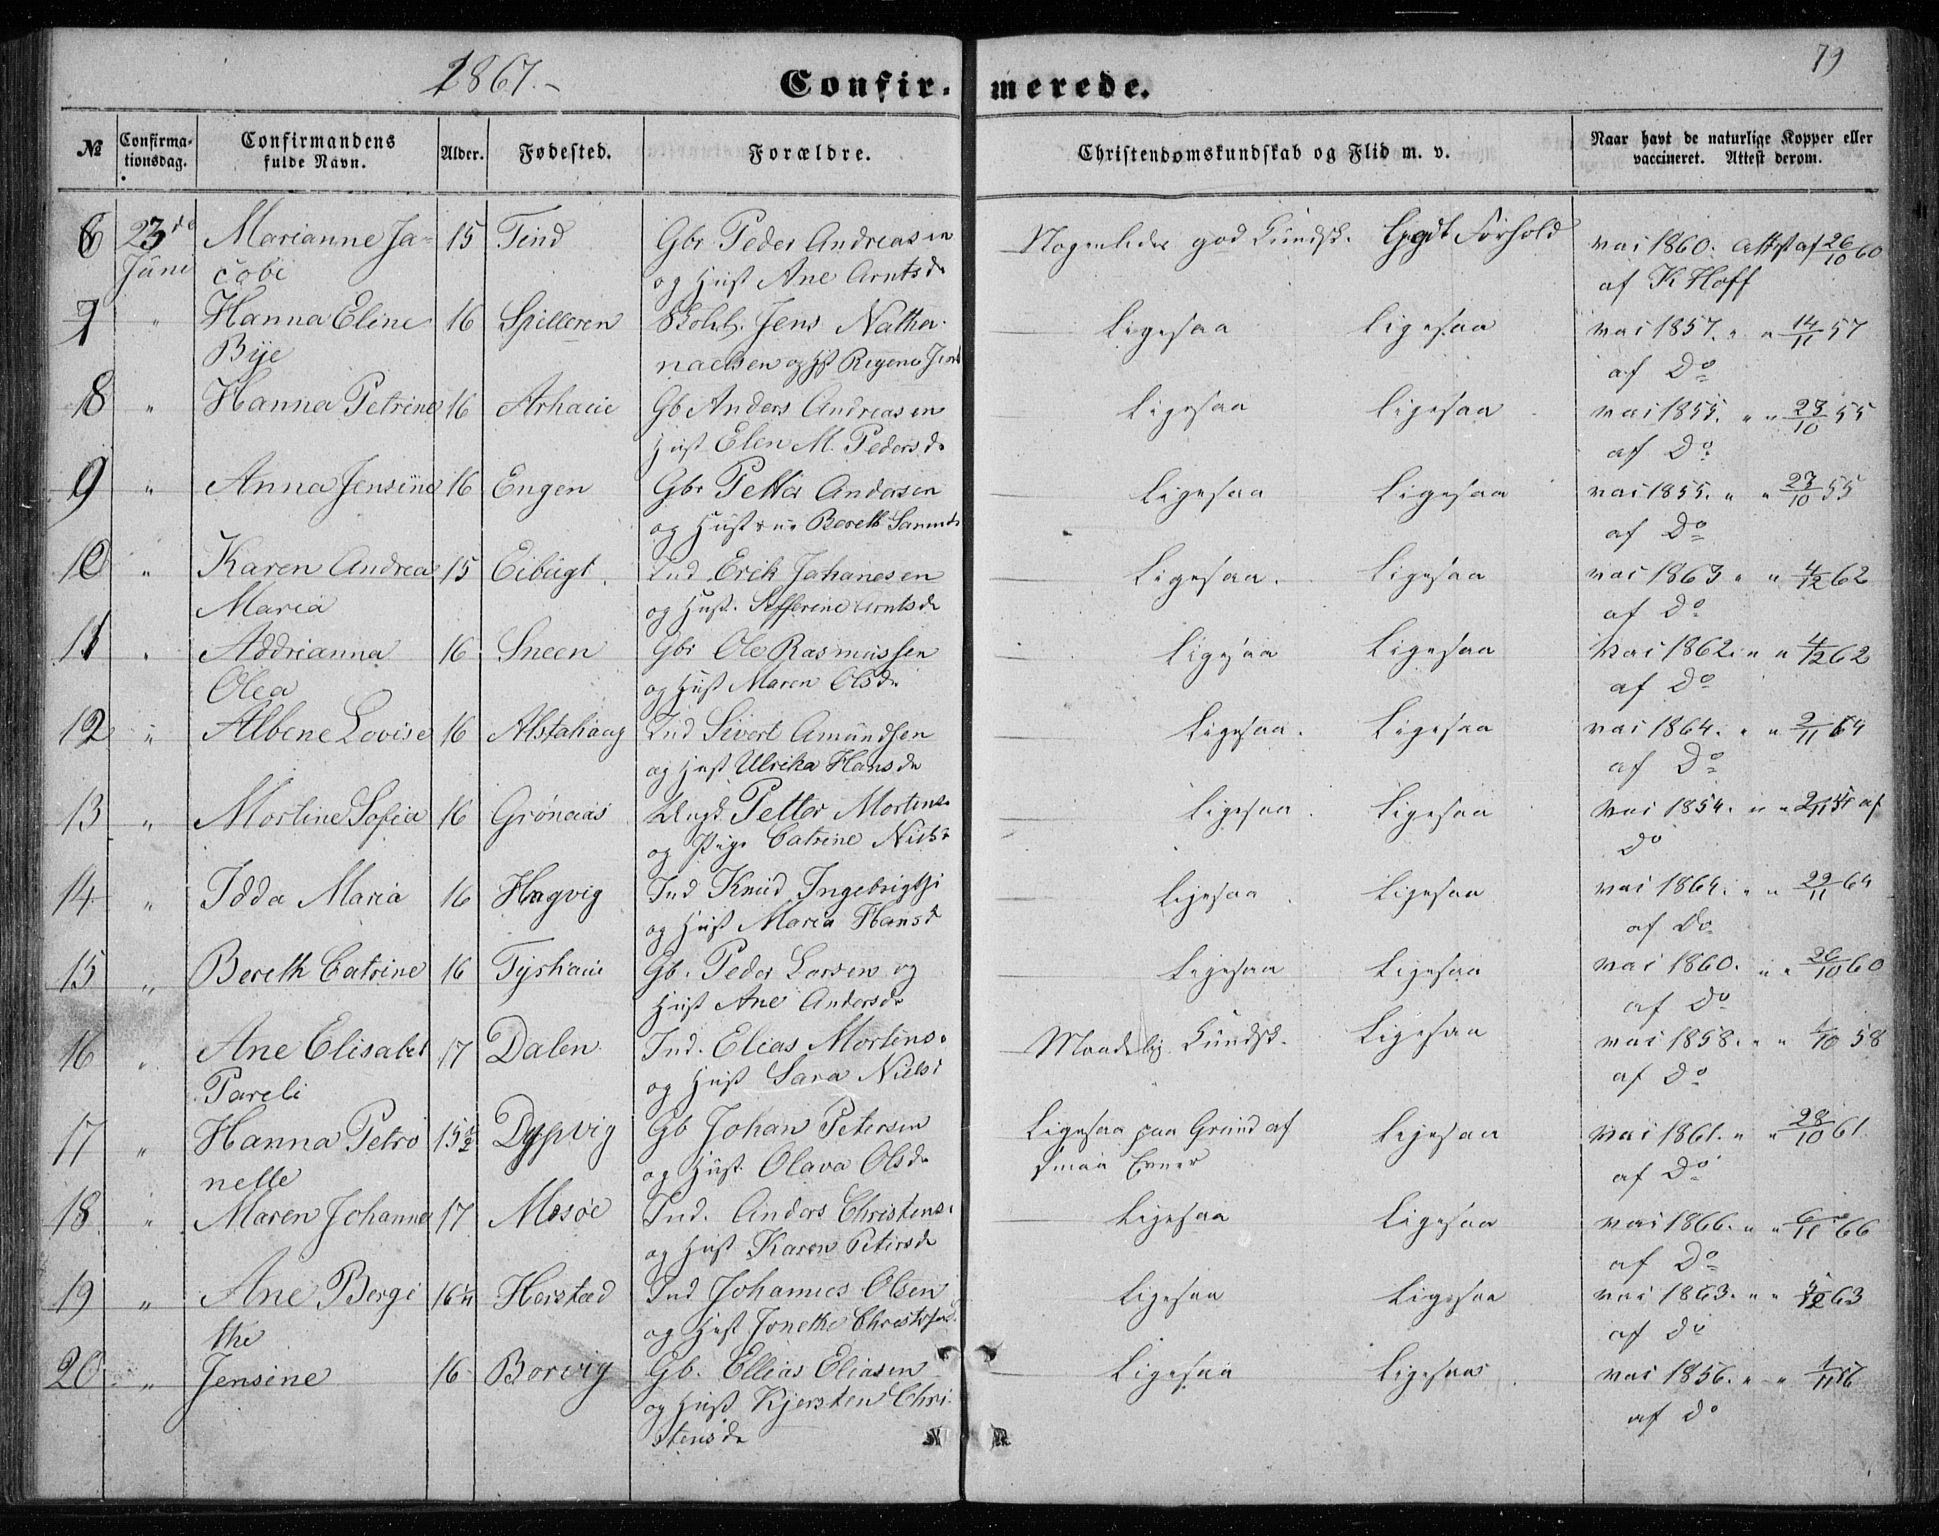 1867.-
79
Confir- merede.
№ Confirma-tionsdag. Confirmandens fulde Navn. Alder. Fødested. Forældre. Christendomskundskab og Flid m. v. Naar havt de naturlige Kopper eller vaccineret. Attest derom.
6 23de Marianne Ja- 15 Tind Gbr Peder Andreasen Nogenledes god Kundsk. Godt Forhold vac 1860. Attest af 26/10 60
Juni cobi og Hust Ane Arntsd. af K Hoff
7 " Hanna Eline 16 Spilleren Jens Natha- Ligesaa Ligesaa vac 1857. " " 14/11 57
Bye naelsen og Hst Regine af Do
8 " Hanna Petrine 16 Arhaue Gb Anders Andreasen Ligesaa Ligesaa vac 1855. " " 23/10 55
Hust Elen M. Pedersd. af Do
9 " Anna Jensine 16 Engen Gbr Petter Andersen Ligesaa Ligesaa vac 1855. " " 23/10 55
og Hustrue Bereth af Do
10 " Karen Andrea 15 Eibugt. Ind Erik Johanesen Ligesaa. Ligesaa vac 1863 " " 4/12 62
Maria og Hust. Arntsd. af Do
11 " Addrianna 16 Sneen Gbr Ole Rasmussen Ligesaa Ligesaa vac 1862. " " 4/12 62
Olea og Hust Maren Olsd. af Do
12 " Albene Lovise 16 Alstahaug Ind Sivert Amundsen Ligesaa. Ligesaa vac 1864. " "
og Hust Ulrika Hansd. af Do
13 " Mortine Sofia 16 Grønaas Ungk. Petter Mortens. Ligesaa. Ligesaa vac 1854. " " af
og Pige Catrine Nielsd. do
14 " Idda Maria 16 Hagvig Ind Knud Ingebrigts. Ligesaa. Ligesaa vac 1864. " " 29/11 64
og Hust Maria Hansd. af Do
15 " Bereth Catrine 16 Tyshaue Gb. Peder Larsen og Ligesaa Ligesaa vac 1860. " " 26/10 60
Hust Ane Andersd. af Do
16 " Ane Elisabet 17 Dalen Ind. Elias Mortens. Maadelig Kundsk. Ligesaa vac 1858. " " 58
Pareli og Hust Sara Nielsd. af Do
17 " Hanna Petro 15½ Dypvig Gb Johan Petersen Ligesaa paa Grund af Ligesaa vac 1861. " " 28/10 61.
nelle og Hust. Olava Olsd. smaa Evner af Do
18 " Maren Johanna 17 Mosøe Ind. Anders Christens. Ligesaa Ligesaa vac 1866. " " 6/11 66
og Hust Karen Petersd. af Do
19 " Ane Bergi 16 Herstad Ind Johannes Olsen Ligesaa Ligesaa vac 1863. " " 63
the og Hust Jonethe af do
20. " Jensine 16 Borvig Gb. Ellias Eliasen Ligesaa Ligesaa vac 1856. " "
og Hust Kjersten Chri- af do
stensd.